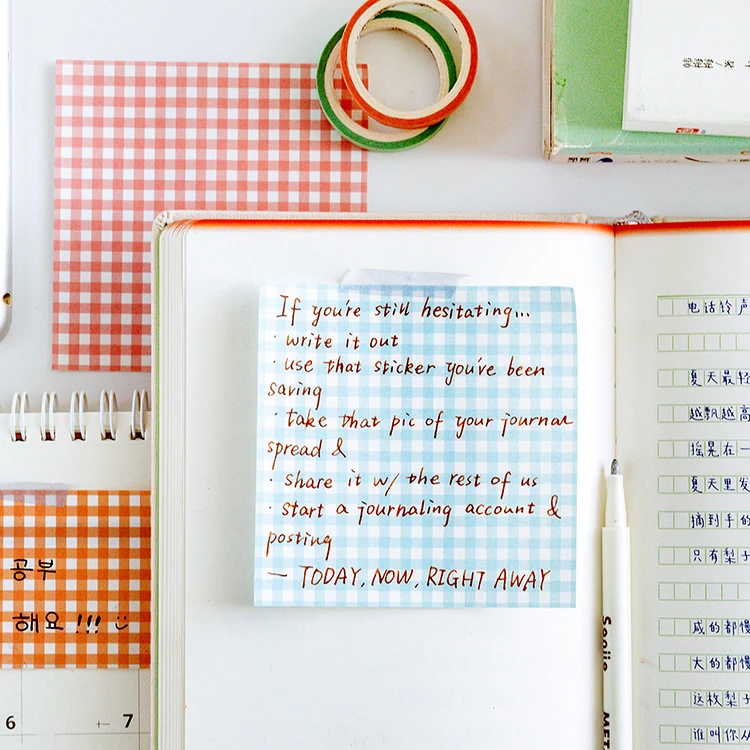 If you're still hesitating...
· write it out
· use that sticker you've been
saving
· take that pic of your journal
spread &
· share it w/ the rest of us
· start a journaling account &
posting
— TODAY, NOW, RIGHT AWAY
공부
해요 !!! :)
6
7
电话铃声
夏天最轻
越飘越高
摇晃在一
夏天里发
摘到手的
只有梨子
咸的都慢
大的都慢
这枚梨子
谁叫你从